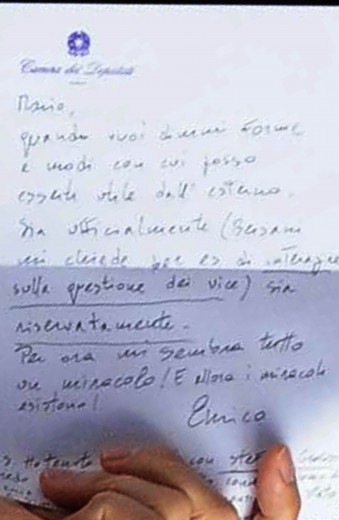 Camera dei Deputati
Mario,
quando vuoi dimmi forme
e modi con cui posso
esserti utile dall'esterno.
Sia ufficialmente (Bersani
mi chiede per es di interagire
sulla questione dei vice) sia
riservatamente.
Per ora mi sembra tutto
un miracolo! E allora i miracoli
esistono!
Enrico
con